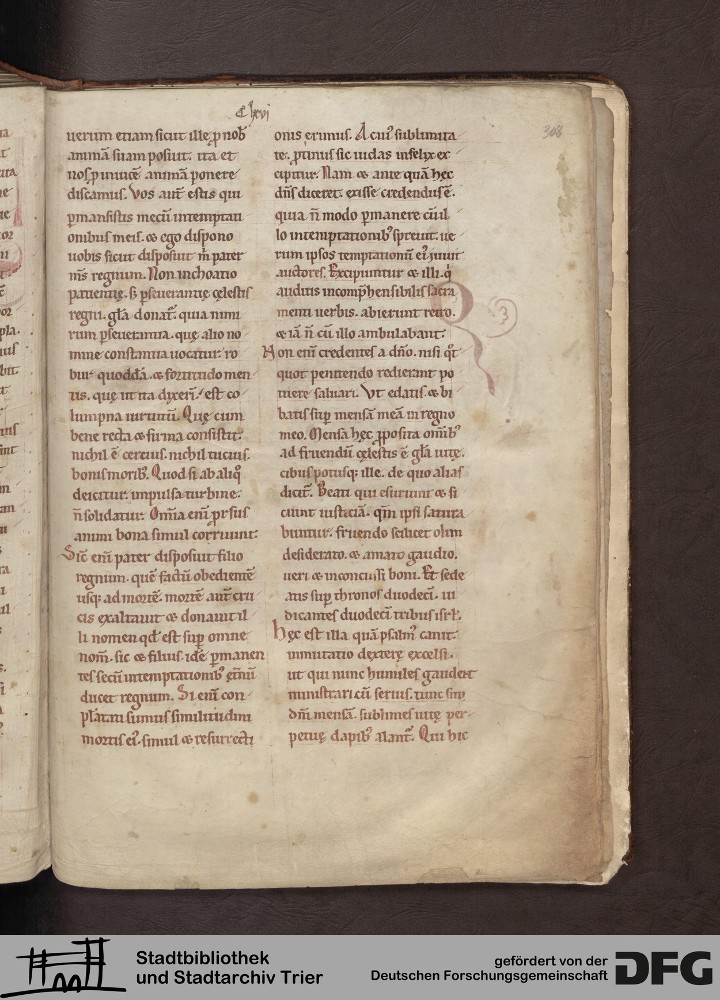 C lxvi
308
uerum etiam sicut ille p nob̄
animā suam posiuit. ita et
nos p inuicē animā ponere
discamus. Vos aut̄ estis qui
pmansistis mecū in temptati
onibus meis. & ego dispono
uobis sicut disposuit m̄ pater
m̄s regnum. Non inchoatio
patientię. s; pseuerantię cęlestis
regni. gl̄a donat̄. quia nimi
rum pseuerantia. quę alio no
mine constantia uocatur ro
bur quoddā. & fortitudo men
tis. quę ut ita dyxerī. est co
lumpna uirtutū. Quę cum
bene recta & firma consistit.
nichil ē certius. nichil tucius.
bonis morib;. Quod si ab aliq̊
deicitur. impulsa turbine.
n̄ solidatur. Om̄ia eni p̄rsus
animi bona simul corruunt.
Sic̄ eni pater disposuit filio
regnum. quē factū obedientē
usq; ad mortē. mortē aut̄ cru
cis exaltauit & donauit il
li nomen qd̄ est sup omne
nom̄. sic & filius. idē pmanen
tes secū in temptationib;
ducet regnum. Si eni con
plātati sumus similitudini
mortis ei᾽. simul & resurrecti
onis erimus. A cui᾽ sublimita
te. ptinus sic iudas infelyx ex
cipitur. Nam & ante quā hęc
dn̄s diceret. exisse credendus ē.
quia n̄ modo pmanere cū il
lo in temptationib; spreuit. ue
rum ipsos temptationū ei᾽ iuuit
auctores. Excipiuntur & illi. q̇
auditis incōp̄hensibilis sacra
menti uerbis. abierunt retro.
& iā n̄ cū illo ambulabant.
Non eni credentes a dn̄o. nisi q̊t
quot penitendo redierant po
tuere saluari. Vt edatis. & bi
batis sup mensā meā in regno
meo. Mensa hęc pposita om̄ib;
ad fruendū cęlestis ē gl̄a uitę.
cibus potusq; ille. de quo alias
dicit̄. Beati qui esuriunt & si
ciunt iusticiā. qm̄ ipsi satura
buntur. fruendo scilicet olim
desiderato. & amato gaudio.
ueri & inconcussi boni. Et sede
atis sup thronos duodeci. iu
dicantes duodeci tribus isrl̄.
Hęc est illa quā psalm᾽ canit.
inmutatio dexterę excelsi.
ut qui nunc humiles gaudent
ministrari cū seruis. tunc sup
dn̄i mensā. sublimes uitę per
petuę dapib; alant̄. Qui hic
3
Stadtbibliothek
und Stadtarchiv Trier
gefördert von der
Deutschen Forschungsgemeinschaft
DFG